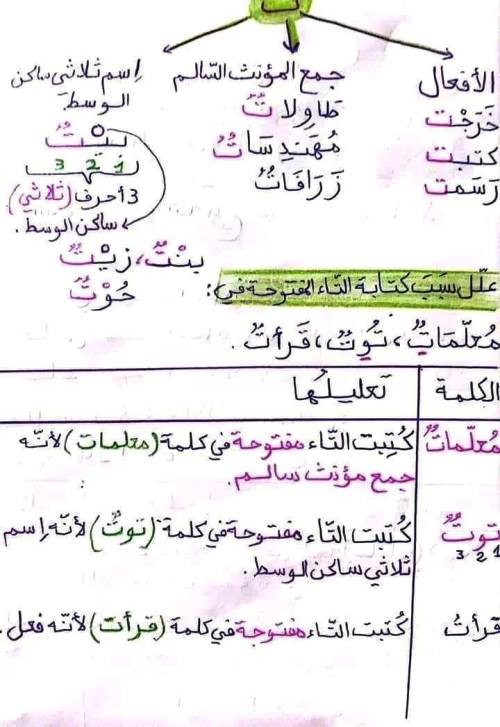 الأفعال
خَرَجْت
كتبت
رَسَمت
جمع المؤنث السّالم
طَاوِلاتٌ
مُهَندِسَاتٌ
زَرَافَاتٌ
اِسم ثلاثي ساكن
الوسط.
بنْتٌ
1 2 3
3 أحرف (ثلاثي)
ساكن الوسط.
بِنْتٌ، زيْتٌ
حُوْتٌ
علّل سبَبَ كتابة التاء المفتوحة في:
مُعلّمَاتٌ، تُوتٌ، قَرأتُ.
الكلمة تعليلُها
مُعلّماتٌ كُتِبت التّاء مفتوحة في كلمة (معلمات) لأنّه
جمع مؤنث سالم.
توتٌ كُتبت التّاء مفتوحة في كلمة (توتٌ) لأنّه اِسم
1 2 3
ثلاثي ساكن الوسط.
قرأتُ كُتبت التّاء مفتوحة في كلمة (قرأت) لأنّه فعل.